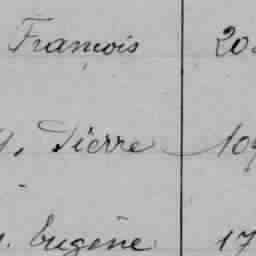 François 20
Pierre 10
Eugène 17